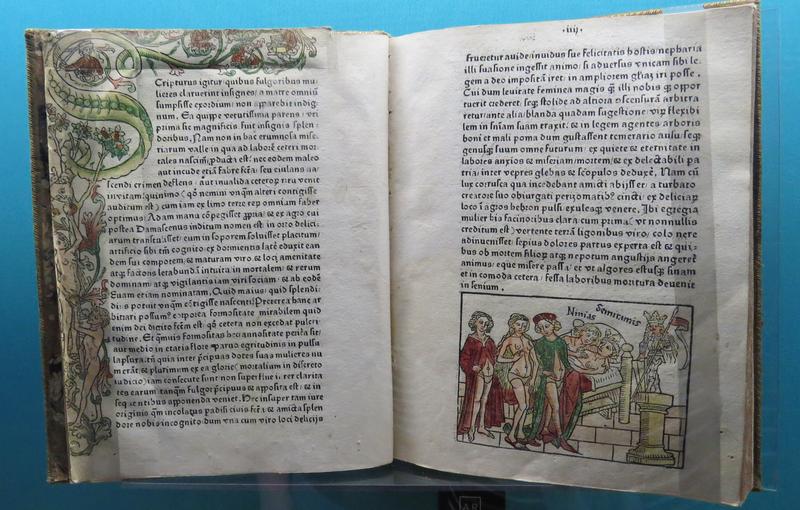 Cripturus igitur quibus fulgoribus mu
lieres claruerint insignes a matre omniū
sumpsisse exordium non apparebit indig
num. Ea quippe vetustissima parens veti
prima sic magnificis fuit insignis splen
doribus. Nam non in hac erumnosa mise
riarum valle in qua ad laborē ceteri mor
tales nascimur producta est nec eodem maleo
aut incude etiā fabrefcā seu eiulans na
scendi crimen deflens aut inualida ceterorum ritu venit
in vitam quinimo quod nemini vnquam alteri contigisse
auditum est cum iam ex limo terre rerum omnium faber
optimus Adam manu cōpegisset propria et ex agro cui
postea Damascenus inditum nomen est in orto delici
arum transtulisset eumque in soporem soluisset placidum
artificio sibi tantum cognito ex dormientis latē eduxit ean
dem sui compotem et maturam viro et loci amenitate
atque factoris letabundā intuitu in mortalem et rerum
dominam atque vigilantis iam viri sociam et ab eodē
Euam etiam nominatam. Quid maius quid splendi
dius potuit vnquam cōtigisse nascenti Preterea hanc ar
bitrari possumus corporea formositate mirabilem quid
enim dei digito factum est quod cetera non excedat pulcri
tudine. Et quamuis formositas hec annositate peritura sit
aut medio in etatis flore paruo egritudinis inpulsu
lapsura tamen quia inter precipuas dotes suas mulieres nu
merant et plurimum ex ea glorie mortalium indiscreto
iudicio iam consecute sunt non superflue inter clarita
tes earum tanquam fulgor precipuus et apposita est et in
sequentibus apponenda veniet. Hec insuper tam iure
originis quam incolatus paradisi ciuis facta et amicta splen
dore nobis incognito dum vna cum viro loci delicijs
.iiij.
frueretur auide inuidus sue felicitatis hostis nepharia
illi suasione ingessit animo si aduersus vnicam sibi le
gem a deo impositam iret in ampliorem gloriam iri posse.
Cui dum leuitate feminea magis quam illi nobisque opor
tuerit crederet seque stolide ad altiora conscensuram arbitra
retur ante alia blanda quadam suggestione virum flexibi
lem in sententiam suam traxit et in legem agentes arboris
boni et mali poma dum gustassent temerario ausu seque
genusque suum omne futurum ex quiete et eternitate in
labores anxios et miseriam mortem et ex delectabili pa
tria inter vepres glebas et scopulos deduxere. Nam cum
lux corrusca qua incedebant amicti abijsset a turbato
creatore suo obiurgati perizomatibus cincti ex deliciarum
loco in agros hebron pulsi exulesque venere. Ibi egregia
mulier his facinoribus clara cum prima vt nonnullis
creditum est vertente terram ligonibus viro colo nere
adinuenisset sepius dolores partus experta est et qui
bus ob mortem filiorum atque nepotum angustijs angeretur
animus eque misere passa et vt algores estusque sinam
et incomoda cetera fessa laboribus moritura deuenit
in senium.
Ninias
Semiramis